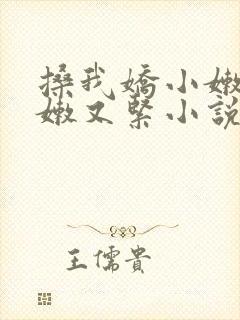 搡我嬌小嫩
嫩又緊小說
王儒貴